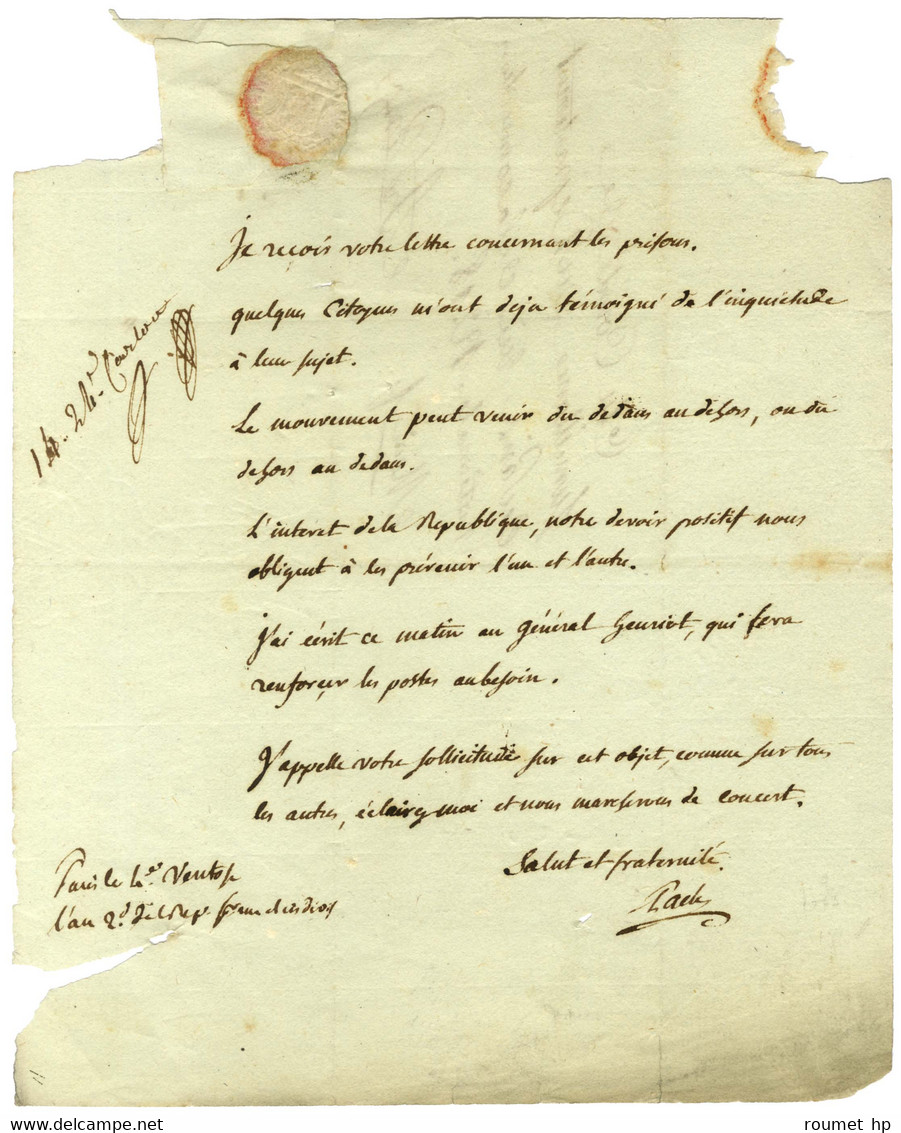 Je reçois votre lettre concernant les prisons.
quelques Citoyens m'ont deja témoigné de l'inquietude
à leur sujet.
Le mouvement peut venir du dedans au dehors, ou du
dehors au dedans.
L'interet dela Republique, notre devoir positif nous
obligent à les prévenir l'un et l'autre.
J'ai écrit ce matin au général henriot, qui fera
renforçer les postes aubesoin.
J'appelle votre sollicitude sur cet objet, comme sur tous
les autres, éclairez moi et nous marcherons de concert.
Salut et fraternité.
Pache
Paris le 4e. Ventose
l'an 2d. de la Rep.
roumet hp